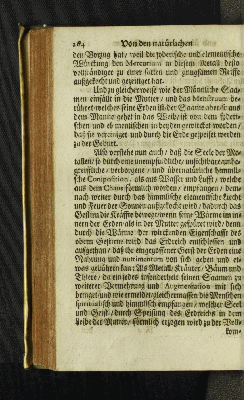 264 Von den natürlichen
den Vorzug hat, weil die jrderische und elementische
Würckung den Mercurium in diesem Metall desto
vollständiger zu einer satten und gnugsamen Reiffe
aufgekocht und gezeitiget hat.
Und zu gleicherweise wie der Männliche Saa-
men einfällt in die Mutter / und das Menstruum be-
rühret welches seine Erden ist: der Saame aber so aus
dem Manne gehet in das Weibige von dem
schen und elementischen in beyden gewircket worden /
daß sie vereiniget und durch die Erde gespeiset werden
zu der Geburt.
Also verstehe nun auch / daß die Seele der Me-
tallen so durch eine unempfindliche / unsichtbare unbe-
greifliche / verborgene / und übernatürliche himmli-
sche Composition, als aus Wasser und Lufft / welche
aus dem Chaos formlich worden / empfangen / dem-
nach weiter durch das himmlische elementische Liecht
und Feuer der Sonnen aufgekocht wird / dadurch das
Gestirn die Kräffte beweget wenn seine Wärme im in-
nern der Erden als in der Mutter gespühret wird / denn
durch die Wärme der würckenden Eigenschafft des
obern Gestirns wird das Erdreich entschlossen und
aufgethan / daß ihr eingegossener Geist der Erden eine
Nahrung und nutrimentum von sich geben und et-
was gebähren kan: Als Metall / Kräuter / Bäum und
Thiere / da ein jedes insonderheit seinen Saamen zu
weiterer Vermehrung und Augmentation mit sich
bringet / und wie ermeldet / gleichermassen die Menschen
spiritualisch und himmlisch empfangen / welcher Seel
und Geist / durch Speisung des Erdreichs in dem
Leibe der Mutter / förmlich erzogen wird zu der Voll-
kom-